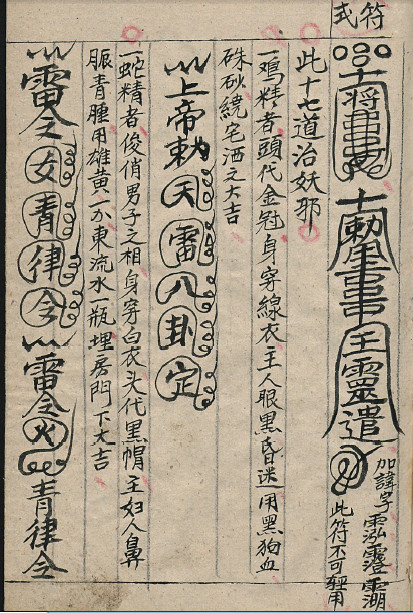 符式
勅
王靈遣
加諱字
此符不可輕用
此十七道治妖邪
一鸡精者頭代金冠身穿線衣主人眼黑昏迷用黑狗血
硃砂繞宅洒之大吉
上帝勅天雷八卦定
一蛇精者俊俏男子之相身穿白衣头代黑帽主妇人鼻
脤青腫用雄黄一東流水一瓶埋房門下大吉
雷令女青律令雷令火青律令